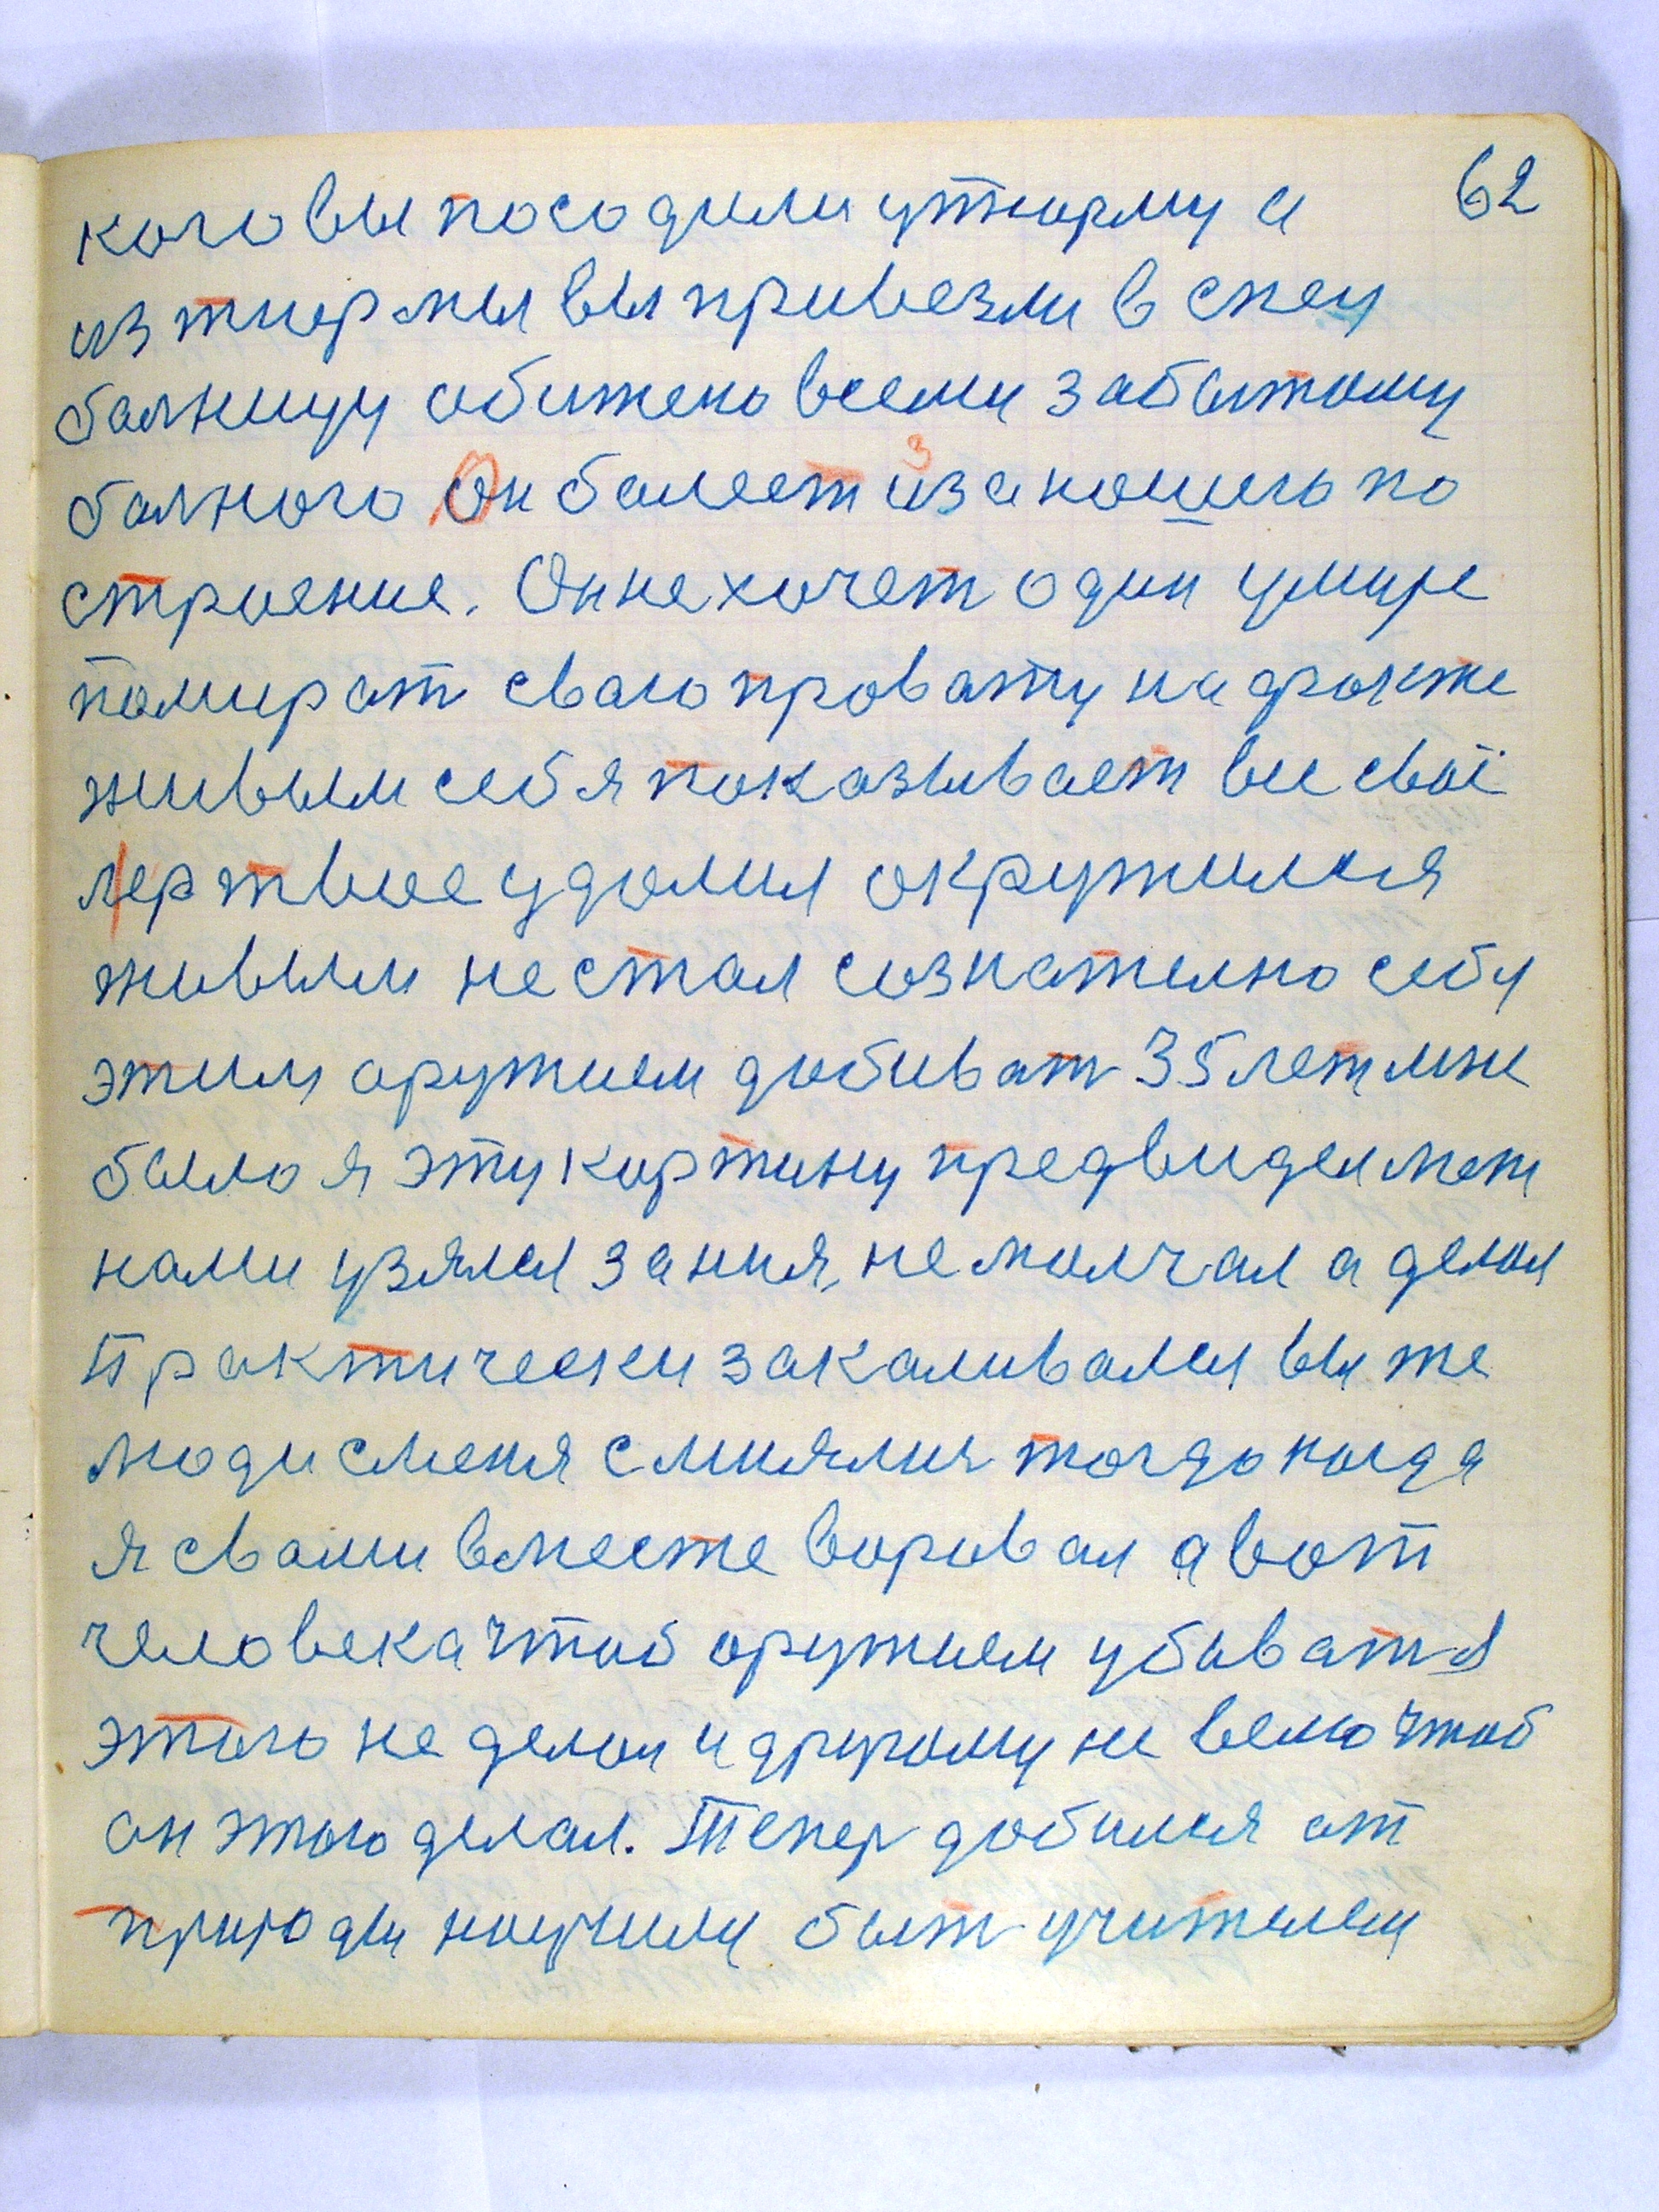 62
кого вы посодили у тюрму а
из тюрмы вы привезли в спец
балницу обижено всеми забытому
балного Он балеет изза ношего по
строение. Он не хочет один умире
помират сваю провату на фронте
живым себя показывает все своё
мертвое удомил окружился
живым не стал сознателно себя
этим аружием добиват 35 лет мне
было я эту картину предвидел меж
нами узялся за ния, не молчал а делал
Практически закаливался вы же
люди с меня смиялис тогда когда
я с вами вместе воровал а вот
человека чтоб оружием убиват я
этого не делал и другому не велю чтоб
он этого делал. Тепер добился от
природы научили быт учителем